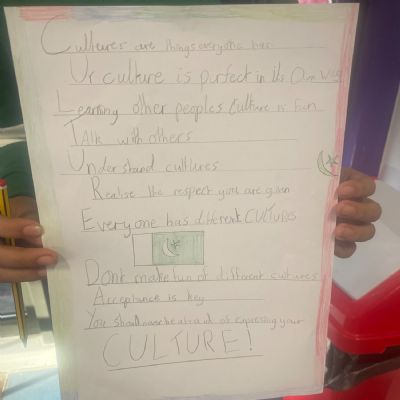 Cultures are things everyone has
Ur culture is purfect in its Own Way
Learning other peoples Culture is Fun
Talk with others
Understand cultures
Realise the respect you are given
Everyone has different CULTURES
Dont make fun of different cultures
Acceptance is key
You should never be afraid of expressing your
CULTURE!